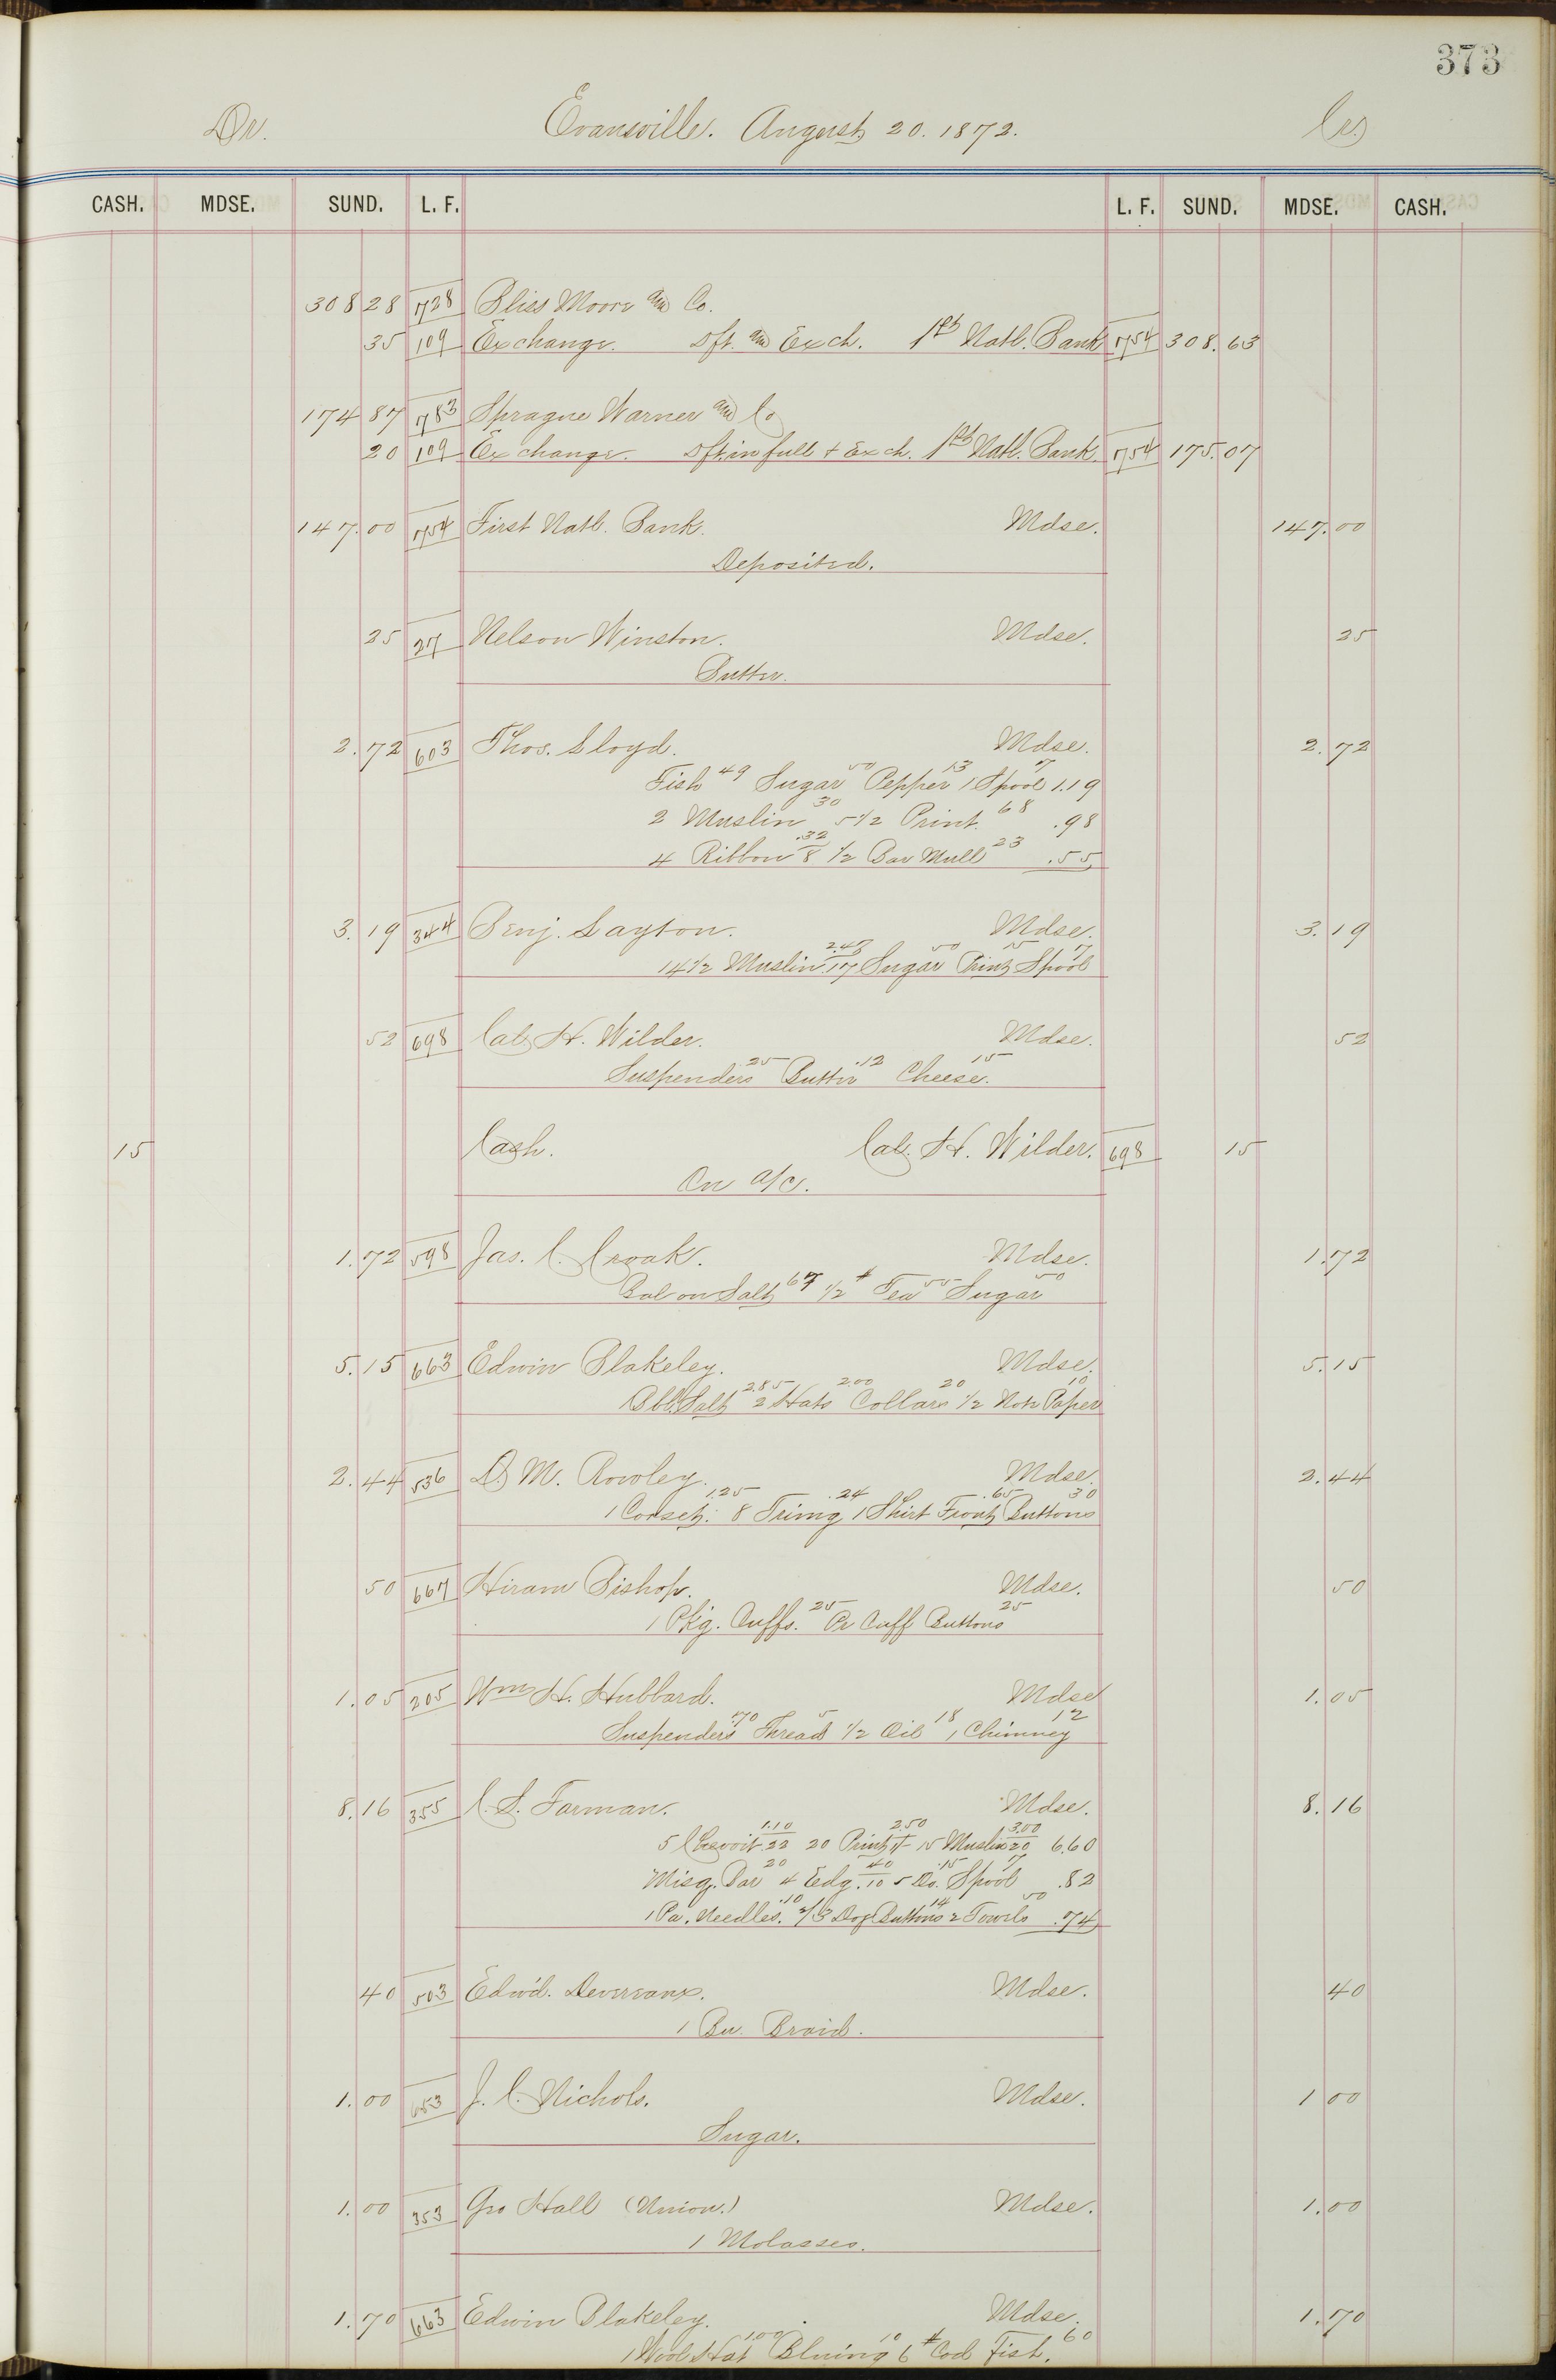 373
Dr. Evansville. August 20. 1872. Cr.
CASH. MDSE. SUND. L. F. L. F. SUND. MDSE. CASH.
308 28 728 Bliss Moore and Co.
35 109 Exchange. Dft. and Exch. 1st Natl. Bank 754 308.63
174 87 783 Sprague Warner and Co
20 109 Exchange. Dft. in full + Exch. 1st Natl. Bank. 754 175.07
147.00 754 First Natl. Bank. Mdse. 147.00
Deposited.
25 27 Nelson Winston. Mdse. 25
Butter.
2.72 603 Thos. Lloyd. Mdse. 2.72
Fish 49 Sugar 50 Pepper 13 1 Spool 7 1.19
2 Muslin 30 5 1/2 Print. 68 .98
4 Ribbon .32 8 1/2 Bar Mull 23 .55
3.19 344 Benj. Layton. Mdse. 3.19
14 1/2 Muslin 2.47 17 Sugar 50 Print 15 Spool 7
52 698 Cal. H. Wilder. Mdse. 52
Suspenders 25 Butter .12 Cheese. 15
15 Cash. Cal. H. Wilder. 698 15
On a/c.
1.72 598 Jas. C. Croak. Mdse. 1.72
Bal on Salt 67 1/2 # Tea 55 Sugar 50
5.15 663 Edwin Blakeley. Mdse. 5.15
Bbl. Salt 2.85 2 Hats 2.00 Collars 20 1/2 Note Paper 10
2.44 536 D. M. Rowley. Mdse. 2.44
1 Corset. 1.25 8 Trimg .24 1 Shirt Front .65 Buttons 30
50 667 Hiram Bishop. Mdse. 50
1 Pkg. Cuffs. 25 Pr Cuff Buttons 25
1.05 205 Wm H. Hubbard. Mdse 1.05
Suspenders .70 Thread 5 1/2 Oil 18 1 Chimney 12
8.16 355 C. S. Farman. Mdse. 8.16
5 Cheviot 1.10 22 20 Print 2.50 15 Muslin 3.00 20 6.60
Misq. Bar 20 4 Edg. 40 10 5 Do. .15 Spool 7 .82
1 Pa. Needles. .10 2/3 Doz Buttons 14 2 Towels 50 .74
40 503 Edw'd. Devereaux. Mdse. 40
1 Bu. Braid.
1.00 653 J. C. Nichols. Mdse. 1 00
Sugar.
1.00 353 Geo Hall (Union.) Mdse. 1.00
1 Molasses.
1.70 663 Edwin Blakeley. Mdse. 1.70
1 Wool Hat 1.00 Bluing 10 6 # Cod Fish. 60